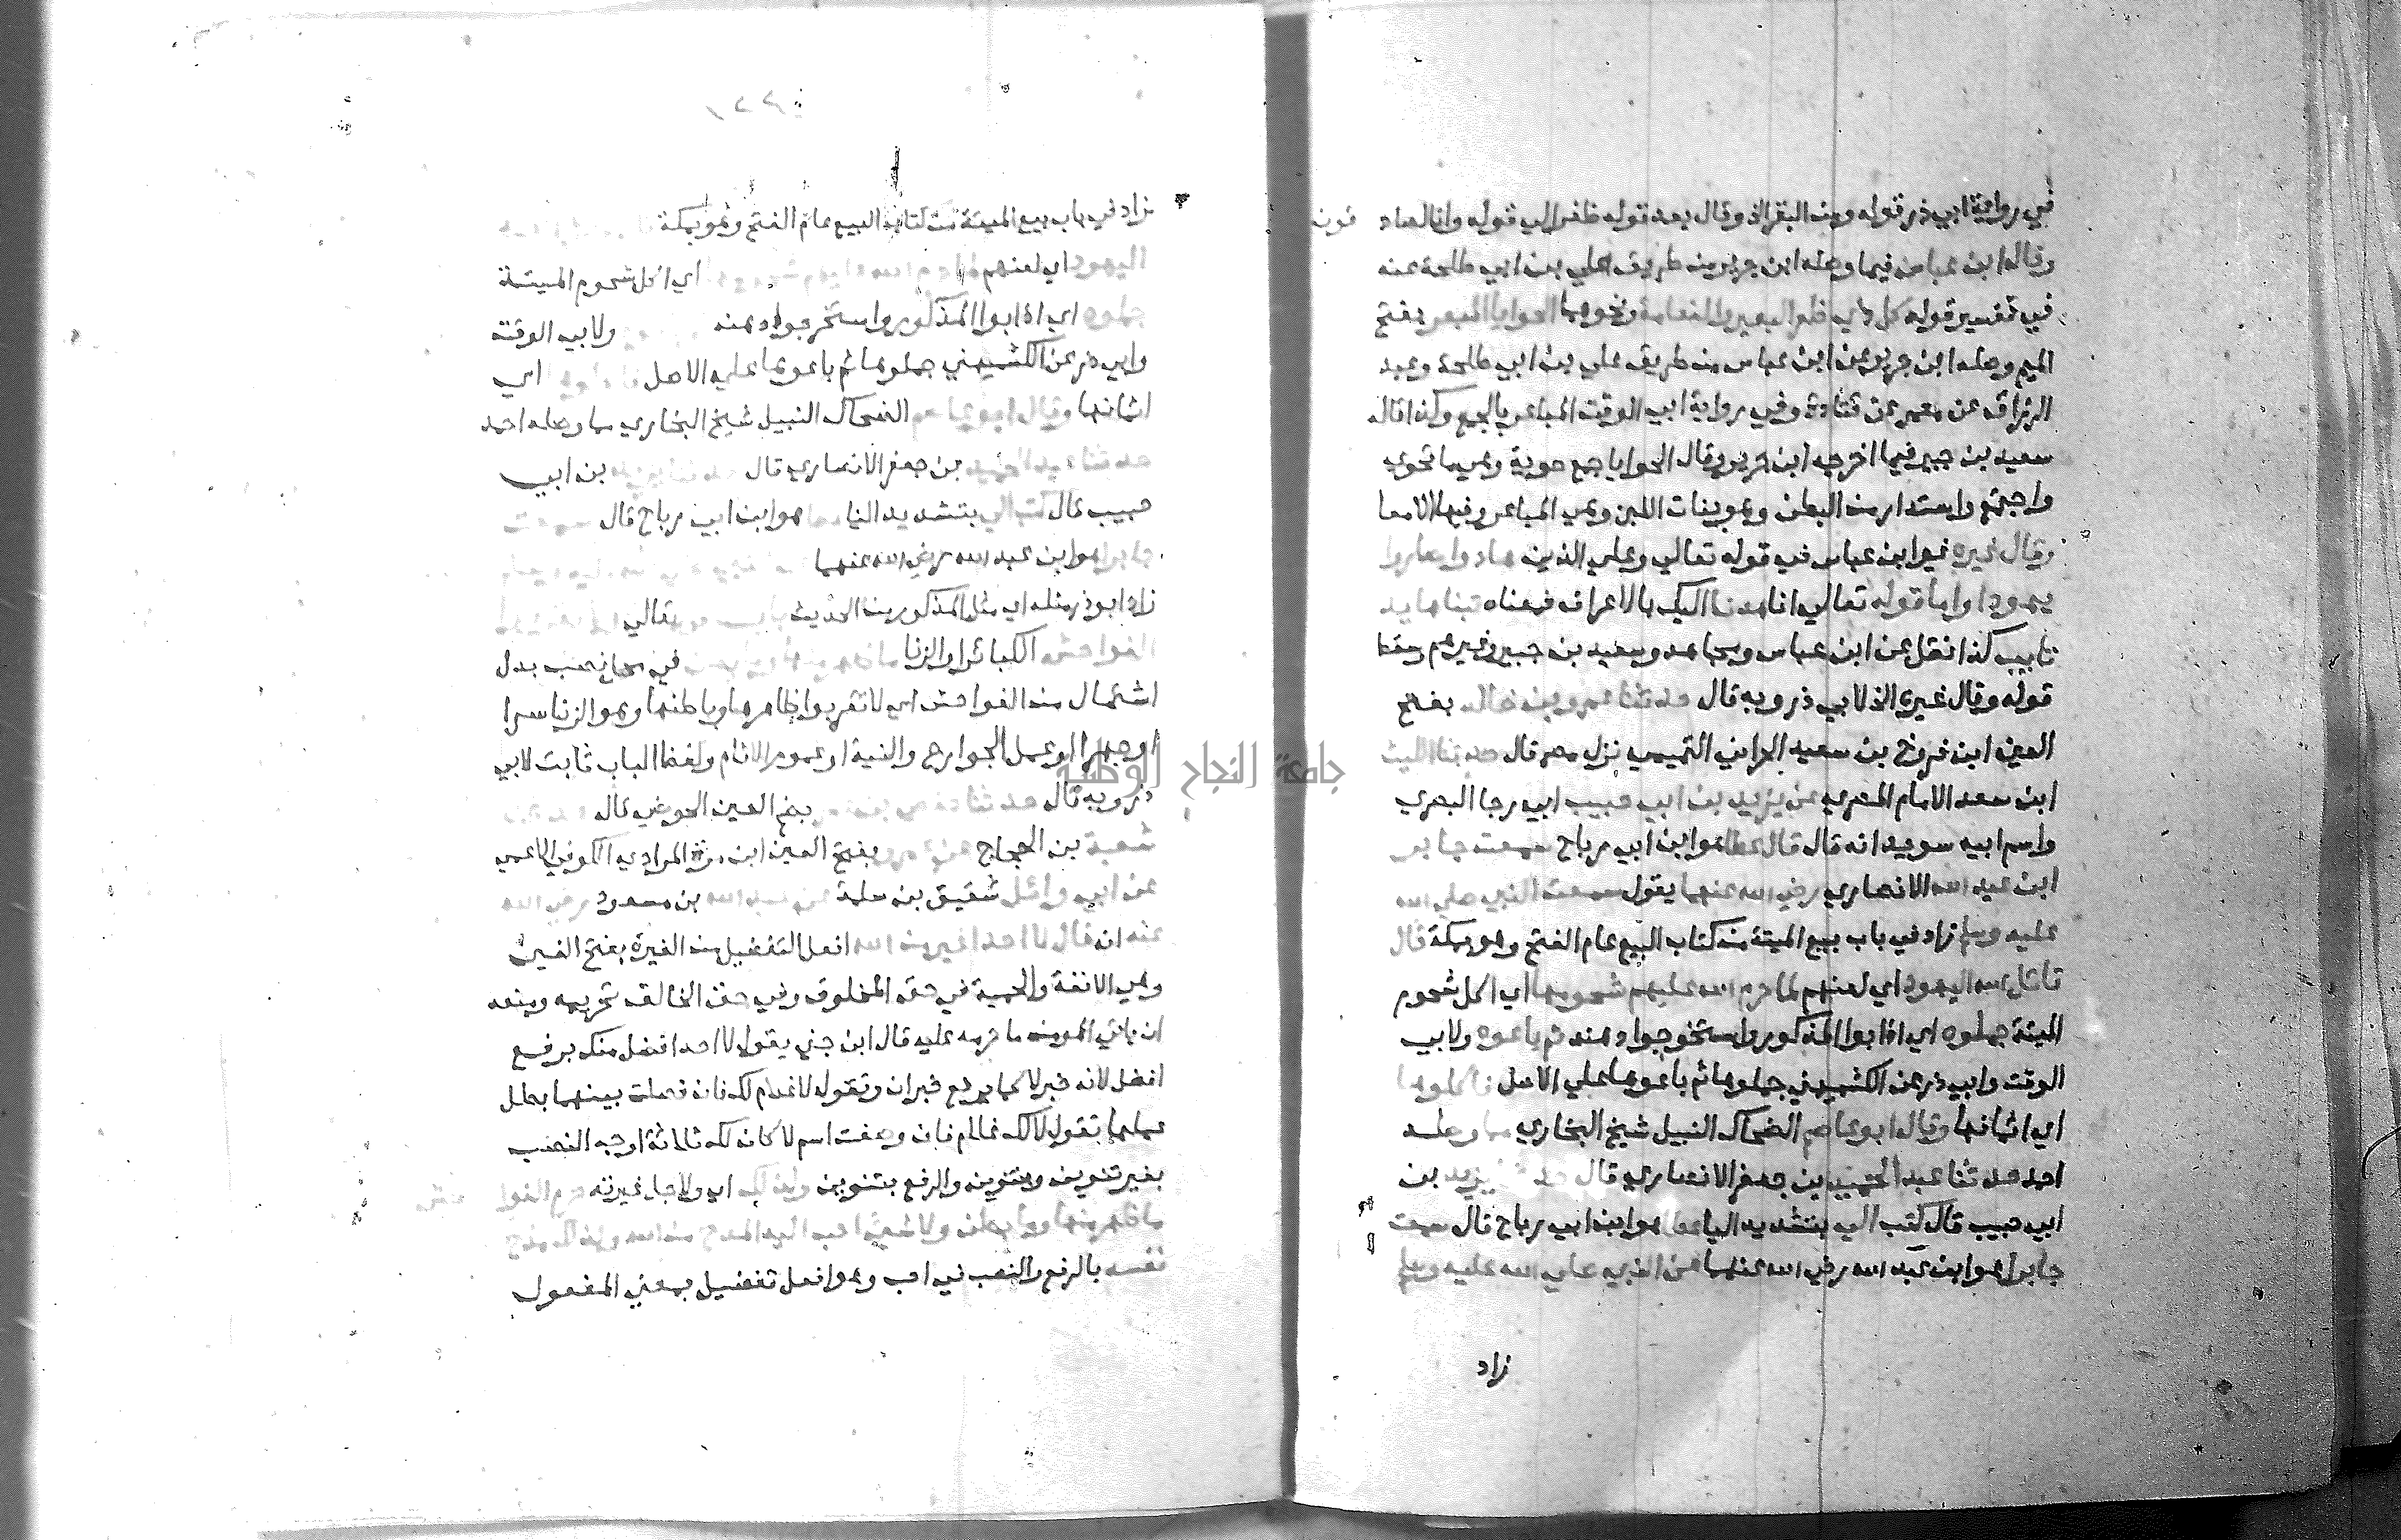 في رواية ابي ذر قوله ومن البقر الاخ وقال بعد قوله ظفر الي قوله وانا لصادقون
وقال ابن عباس فيما وصله ابن جرير من طريق علي بن ابي طلحة عنه
في تفسير قوله كل ذي ظفر البعير والنعامة ونحوهما الحوايا المبعر بفتح
الميم وصله ابن جرير عن ابن عباس من طريق علي بن ابي طلحة وعبد
الرزاق عن معمر عن قتادة وفي رواية ابي الوقت المباعر بالجمع وكذا قاله
سعيد بن جبير فيما اخرجه ابن جرير وقال الحوايا جمع حوية وهي ما تحوي
واجتمع واستدار من البطن وهو بنات اللبن وهي المباعر وفيها الامعا
وقال غيره غير ابن عباس في قوله تعالي وعلي الذين هادوا صاروا
يهودا واما قوله تعالي انا هدنا اليك بالاعراف فمعناه تبنا هايد
تايب كذا نقل عن ابن عباس ومجاهد وسعيد بن جبير وغيرهم وسقط
قوله وقال غيره الخ لابي ذر وبه قال حدثنا عمرو بن خالد بفتح
العين ابن فروخ بن سعيد الحراني التميمي نزل مصر قال حدثنا الليث
ابن سعد الامام المصري عن يزيد بن ابي حبيب ابي رجا البصري
واسم ابيه سويد انه قال قال عطا هو ابن ابي رباح سمعت جابر
ابن عبد الله الانصاري رضي الله عنهما يقول سمعت النبي صلي الله
عليه وسلم زاد في باب بيع الميتة من كتاب البيع عام الفتح وهو بمكة قال
قاتل الله اليهود اي لعنهم لما حرم الله عليهم شحومها اي اكل شحوم
الميتة جملوه اي اذابوا المذكور واستخرجوا دهنه ثم باعوه ولابي
الوقت وابي ذر عن الكشميهني جملوها ثم باعوها علي الاصل فاكلوها
اي اثمانها وقال ابو عاصم الضحاك النبيل شيخ البخاري مما وصله
احمد حدثنا عبد الحميد بن جعفر الانصاري قال حدثنا يزيد بن
ابي حبيب قال كتب الي بتشديد اليا عطا هو ابن ابي رباح قال سمعت
جابرا هو ابن عبد الله رضي الله عنهما عن النبي صلي الله عليه وسلم
زاد
زاد في باب بيع الميتة من كتاب البيع عام الفتح وهو بمكة
اليهود اي لعنهم اي اكل شحوم الميتة
جملوه اي اذابوا المذكور واستخرجوا دهنه ولابي الوقت
وابي ذر عن الكشميهني جملوها ثم باعوها علي الاصل اي
اثمانها وقال الضحاك النبيل شيخ البخاري مما وصله احمد
حدثنا بن جعفر الانصاري قال بن ابي
حبيب قال كتب الي بتشديد اليا هو ابن ابي رباح قال
جابرا هو ابن عبد الله رضي الله عنهما
زاد ابو ذر مثله اي مثل المذكور من الحديث تعالي
الفواحش الكبائر او الزنا في محل نصب بدل
اشتمال من الفواحش اي لا تقربوا ظاهرها وباطنها وهو الزنا سرا
او جهرا او عمل الجوارح والنية او عموم الاثام ولفظ الباب ثابت لابي
ذر وبه قال حدثنا بضم العين الحوضي قال
شعبة بن الحجاج بفتح العين ابن مرة المرادي الكوفي الاعمي
عن ابي وائل شقيق بن سلمة عن عبد الله بن مسعود رضي الله
عنه انه قال لا احد اغير من الله افعل التفضيل من الغيرة بفتح الغين
وهي الانفة والحمية في حق المخلوق وفي حق الخالق تحريمه ومنعه
ان ياتي المومن ما حرمه عليه قال ابن جني يقول لا احد افضل منك برفع
افضل لانه خبر لا كما يرفع خبر ان وتقول لا غلام لك فان فصلت بينهما بطل
عملها تقول لا لك غلام فان وصفت اسم لا كان لك ثلاثة اوجه النصب
بغير تنوين وبتنوين والرفع بتنوين ولذلك اي ولاجل غيرته حرم الفواحش
ما ظهر منها وما بطن ولا شي احب اليه المدح من الله ولذلك مدح
نفسه بالرفع والنصب في احب وهو افعل تفضيل بمعني المفعول
جامعة النجاح الوطنية